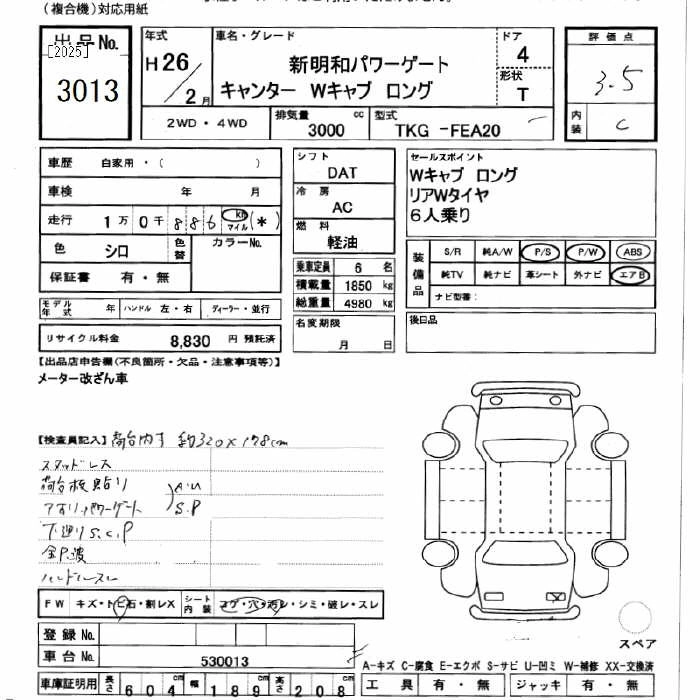 (複合機)対応用紙
出品No.
[2025]
3013
年式
H26/2月
車名・グレード
新明和パワーゲート
キャンター Wキャブ ロング
ドア
4
形状
T
評価点
3.5
内装
C
2WD・4WD
排気量
3000 cc
型式
TKG -FEA20
車歴 自家用・( )
車検 年 月
走行 1万0千886 km マイル (*)
色 シロ 色替 カラーNo.
保証書 有・無
シフト
DAT
冷房
AC
燃料
軽油
乗車定員 6 名
積載量 1850 kg
総重量 4980 kg
名変期限
月 日
セールスポイント
Wキャブ ロング
リアWタイヤ
6人乗り
装備品
S/R 純A/W P/S P/W ABS
純TV 純ナビ 革シート 外ナビ エアB
ナビ型番:
後日品
モデル年式 年 ハンドル 左・右 ディーラー・並行
リサイクル料金 8,830 円 預託済
【出品店申告欄(不良箇所・欠品・注意事項等)】
メーター改ざん車
【検査員記入】荷台内寸 約320×178cm
スタッドレス
荷台板貼り A.U
アオリ、パワーゲート S.P
下廻りS.C.P
FW キズ・トビ石・割レX
シート内装 コゲ・穴・汚レ・シミ・破レ・スレ
登録No.
車台No. 530013
車庫証明用 長さ 604cm 幅 189cm 高さ 208cm
スペア
A-キズ C-腐食 E-エクボ S-サビ U-凹ミ W-補修 XX-交換済
工具 有・無 ジャッキ 有・無